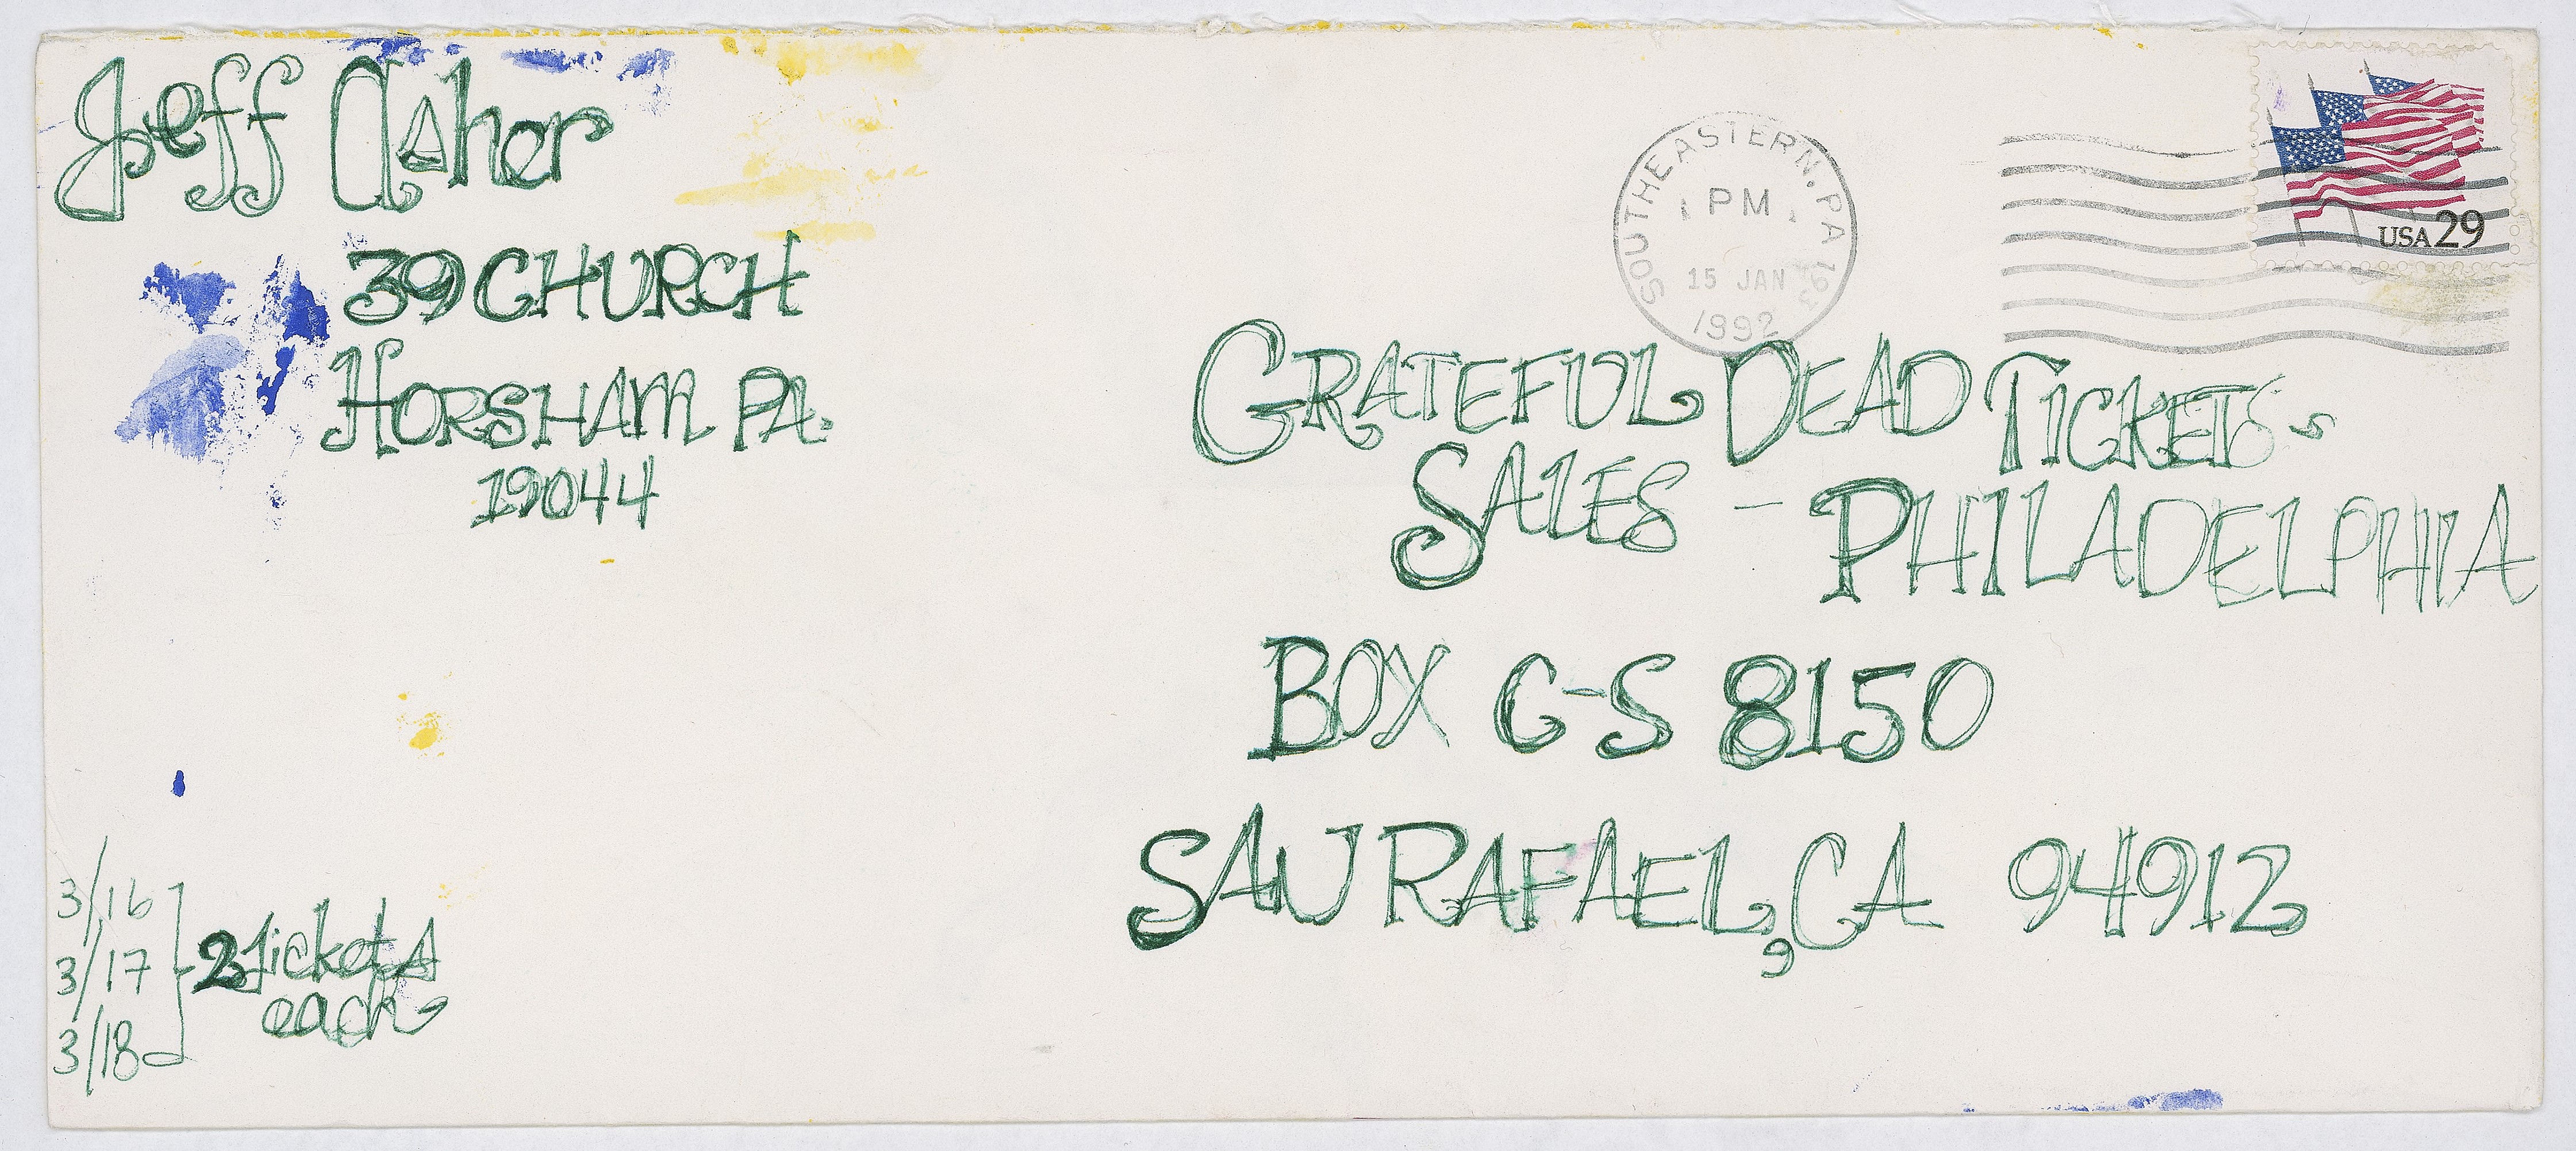 Jeff Asher
39 CHURCH
HORSHAM PA.
19044
SOUTHEASTERN, PA 193
PM
15 JAN
1992
USA 29
GRATEFUL DEAD TICKETS
SALES - PHILADELPHIA
BOX C-S 8150
SAN RAFAEL, CA 94912
3/16
3/17
3/18
2 Tickets
each